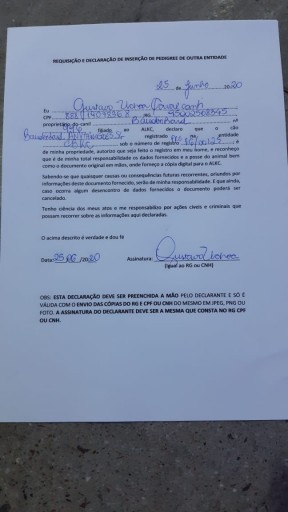 REQUISIÇÃO E DECLARAÇÃO DE INSERÇÃO DE PEDIGREE DE OUTRA ENTIDADE
25 de Junho 2020
Eu Gustavo
CPF RG
proprietário do canil nº
filiado ao ALKC, declaro que o cão
registrado na entidade
CBKC, sob o número de registro
de minha propriedade, autorizo que seja feito o registro em meu nome, e reconheço
que é de minha total responsabilidade os dados fornecidos e a posse do animal bem
como o documento original em mãos, onde forneço a cópia digital para o ALKC.
Sabendo-se que quaisquer causas ou consequências futuras recorrentes, oriundos por
informações deste documento fornecido, serão de minha responsabilidade. E que ainda,
caso ocorra algum desencontro de dados fornecidos o documento poderá ser
cancelado.
Tenho ciência meus atos e me responsabilizo por ações cíveis e criminais que
possam recorrer sobre as informações aqui declaradas.
O acima descrito é verdade e dou fé
Data: 25/06/2020 Assinatura: Gustavo
(igual ao RG ou CNH)
OBS: ESTA DECLARAÇÃO DEVE SER PREENCHIDA A MÃO PELO DECLARANTE E SÓ É
VÁLIDA COM O ENVIO DAS CÓPIAS DO RG E CPF OU CNH DO MESMO EM JPEG, PNG OU
FOTO. A ASSINATURA DO DECLARANTE DEVE SER A MESMA QUE CONSTA NO RG CPF
OU CNH.